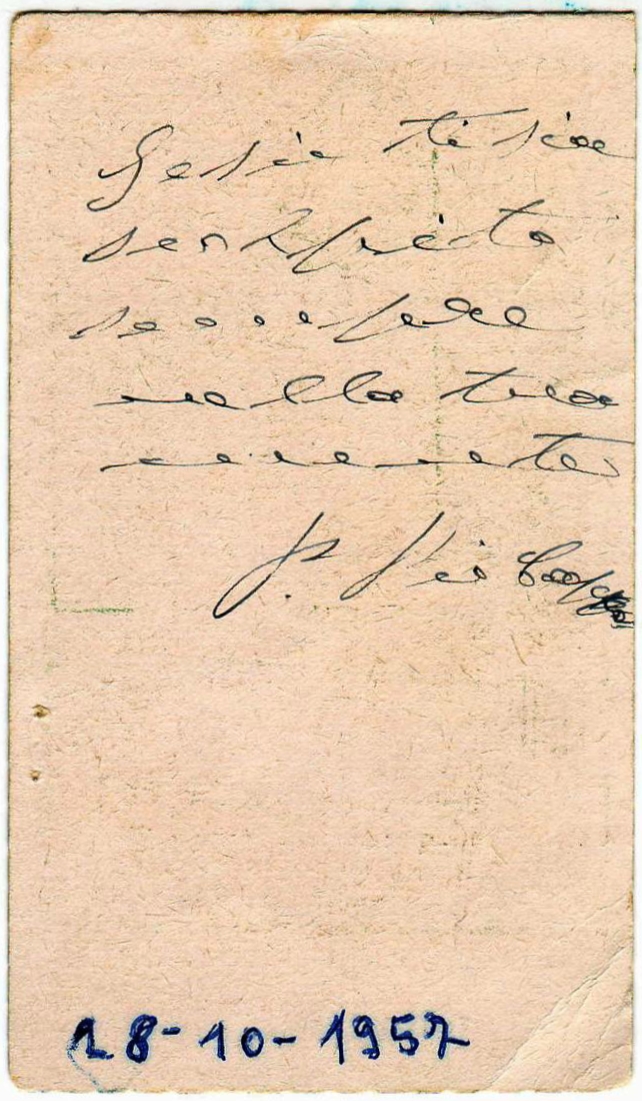 Gesù ti sia
scolpito
sempre
nella tua
mente
P. Pio Capp
18-10-1957